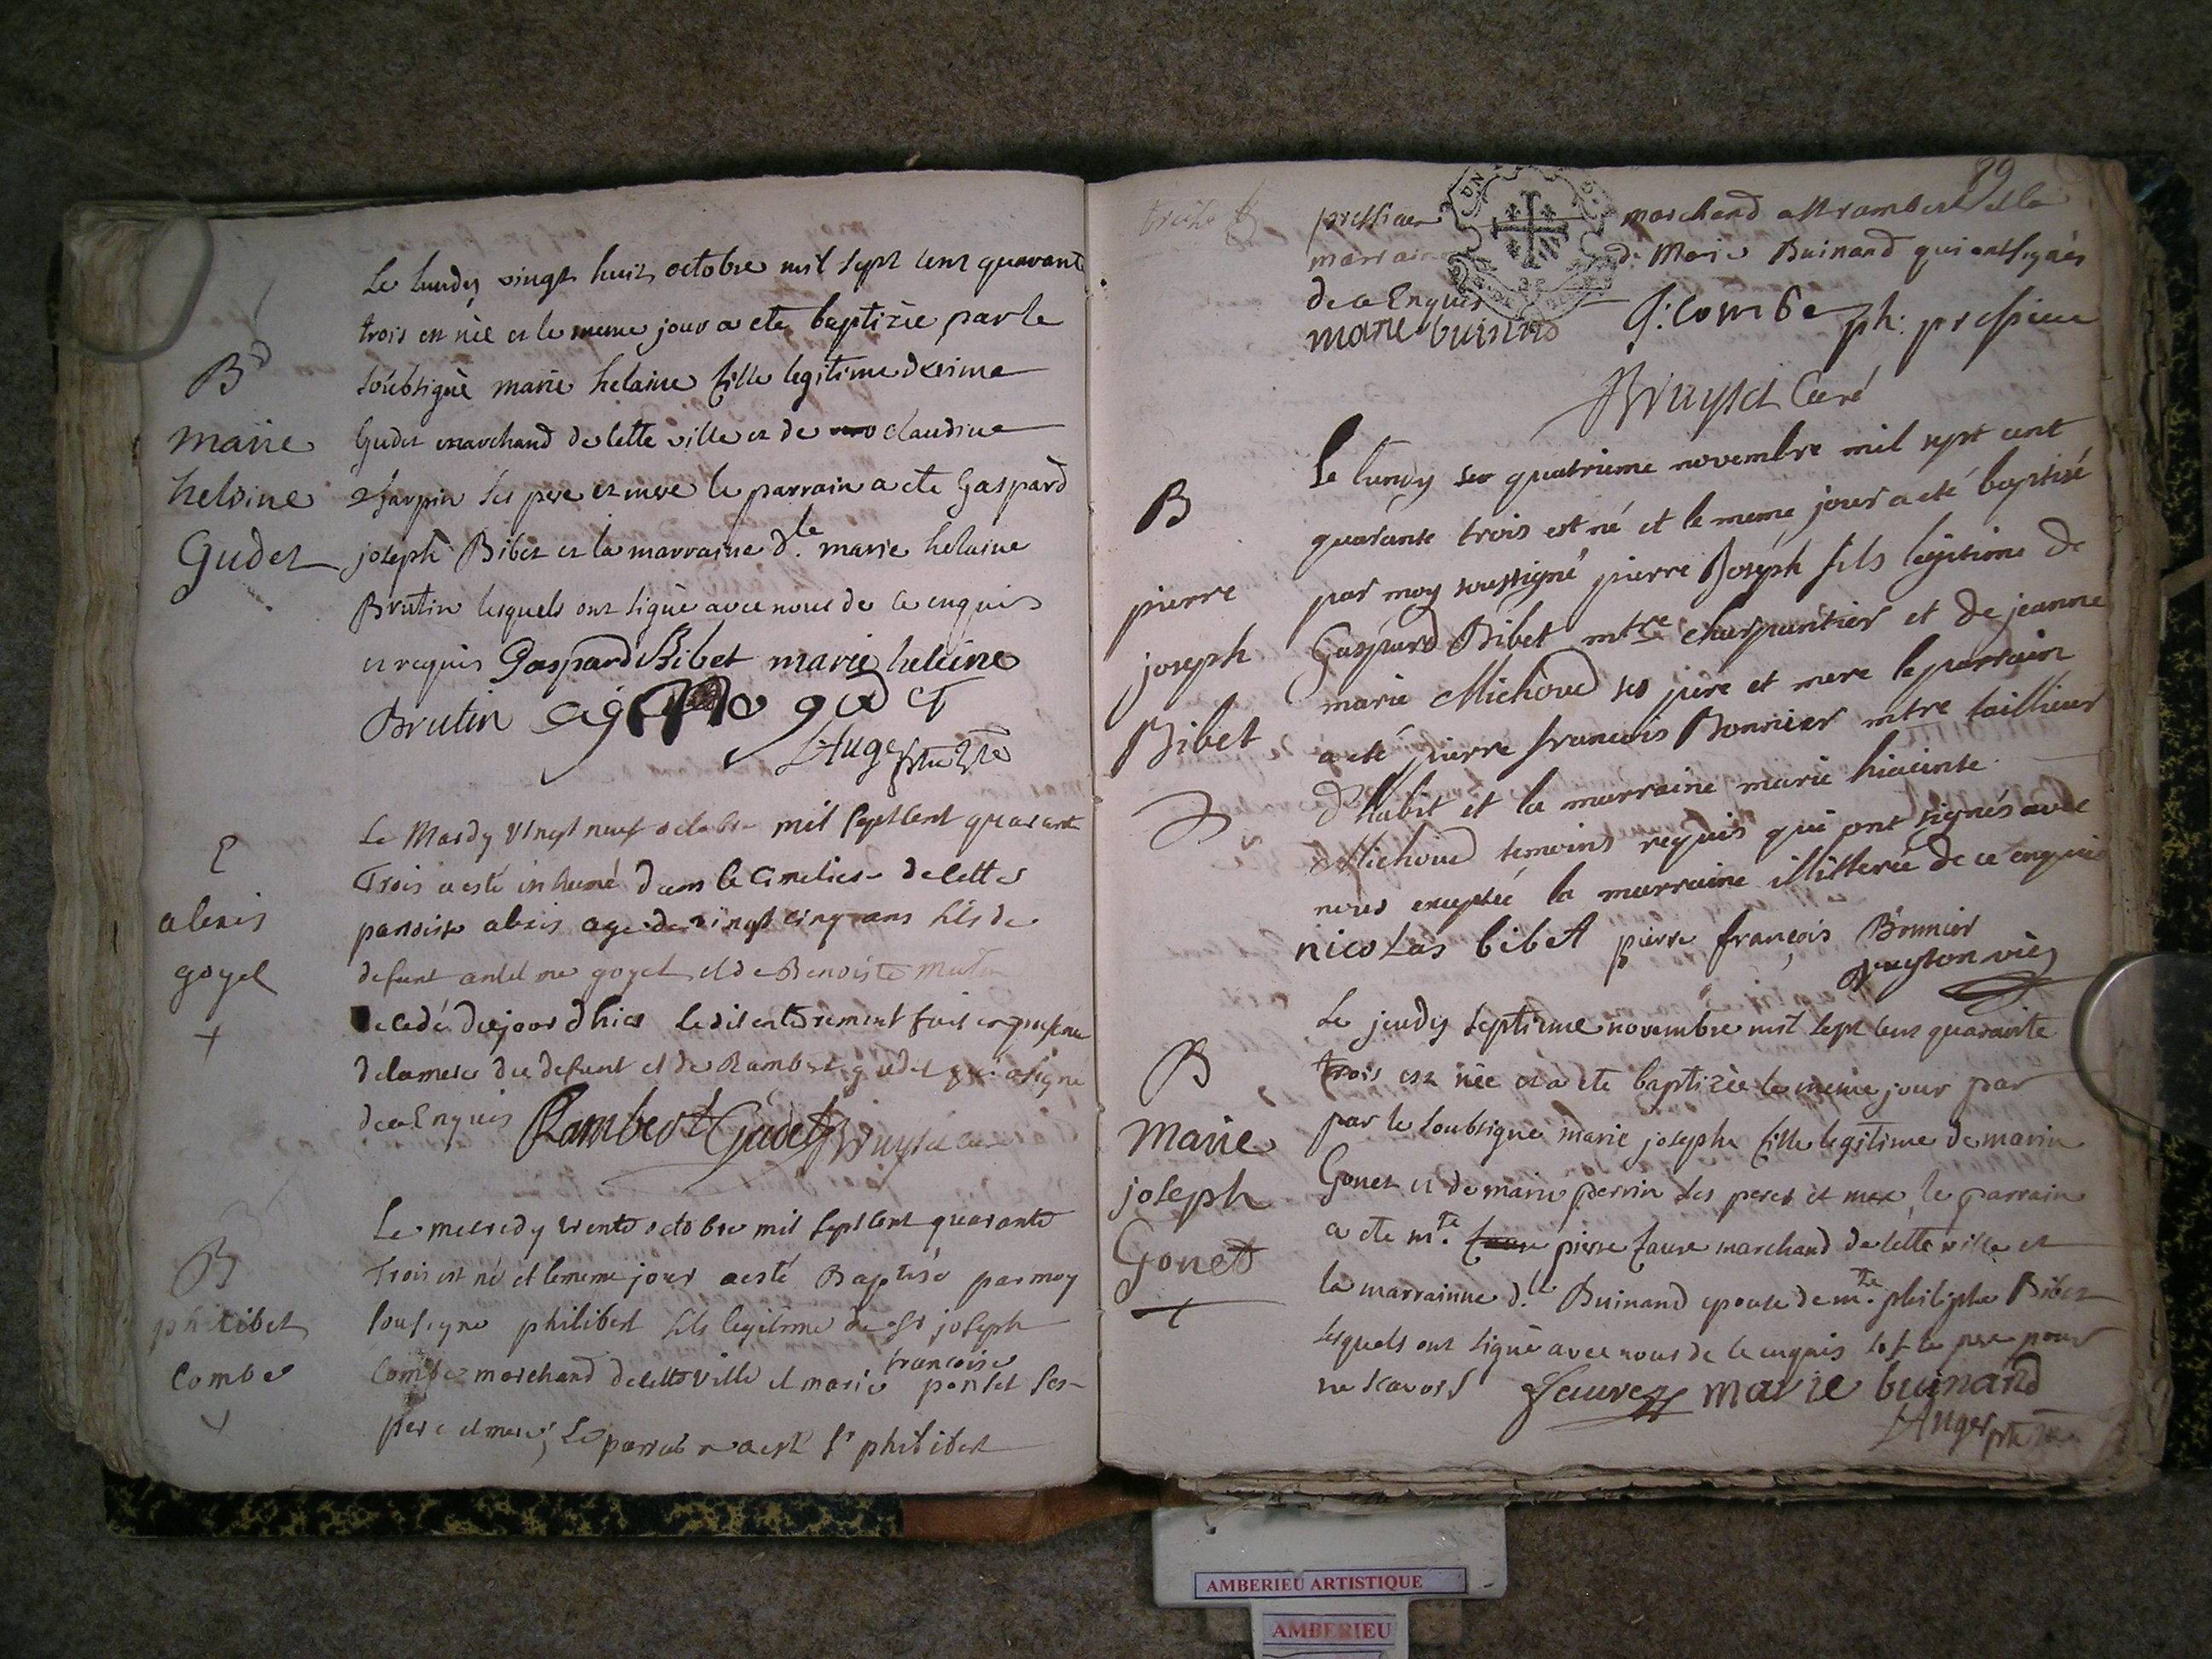 Le lundy vingt huit octobre mil sept cent quarante
trois est née et le meme jour a ete baptizée par le
soubsigné marie helaine fille legitime
Gudet marchand de cette ville et de claudine
Charpin ses pere et mere le parrain a ete Gaspard
joseph Bibet et la marraine d.le marie helaine
Brutin lesquels ont signé avec nous de ce enquis
et requis Gaspard Bibet marie heleine
Brutin gudet
Auger
Bd
marie
heloine
Gudet
Le Mardy vingt neuf octobre mil sept cent quarante
Trois a esté inhumé dans le Cimetiere de cette
paroisse alexis age de vingt cinq ans fils de
defunt goyet et de Benoiste
decedé du jour d'hier ledit enterrement fait en presence
de la mere du defunt et de Rambert gudet qui a signé
de ce Enquis Rambert Gudet Bruyset curé
E
alexis
goyet
+
Le mecredy trente octobre mil sept cent quarante
Trois est né et le meme jour a esté Baptisé par moy
sousigne philibert fils legitime de Sr joseph
Combe marchand de cette ville et marie francoise ses
pere et mere, Le parrain a esté Sr philibert
B
philibert
Combe
99
pressieu marchand a St rambert et la
marraine d. Marie Buinand qui ont signés
de ce Enquis
marie buinand J: Combe ph: pressieu
Bruyset Curé
Le lundy quatrieme novembre mil sept cent
quarante trois est né et le meme jour a eté baptisé
par moy soussigné pierre Joseph fils légitime de
Gaspard Bibet mtre charpantier et de jeanne
marie Michoud ses pere et mere le parrain
a eté pierre francois Bonnier mtre taillieur
d'Habit et la marraine marie hiacinte
Michoud temoins requis qui ont signés avec
nous exceptée la marraine illitterée de ce enquise
nicolas bibet pierre françois Bonnier
B
pierre
joseph
Bibet
Le jeudy septieme novembre mil sept cens quarante
trois est née et a ete baptizée le meme jour par
par le soubsigné marie josephe fille legitime de marin
Gonet et de marie perrin ses peres et mere, le parrain
a ete m.re pierre faure marchand de cette ville et
la marrainne d.lle Buinand epouse de m.re philiphe Bibet
lesquels ont signé avec nous de ce enquis le pere pour
ne scavoir faure marie buinand
Auger
B
Marie
joseph
Gonet
+
AMBERIEU ARTISTIQUE
AMBERIEU